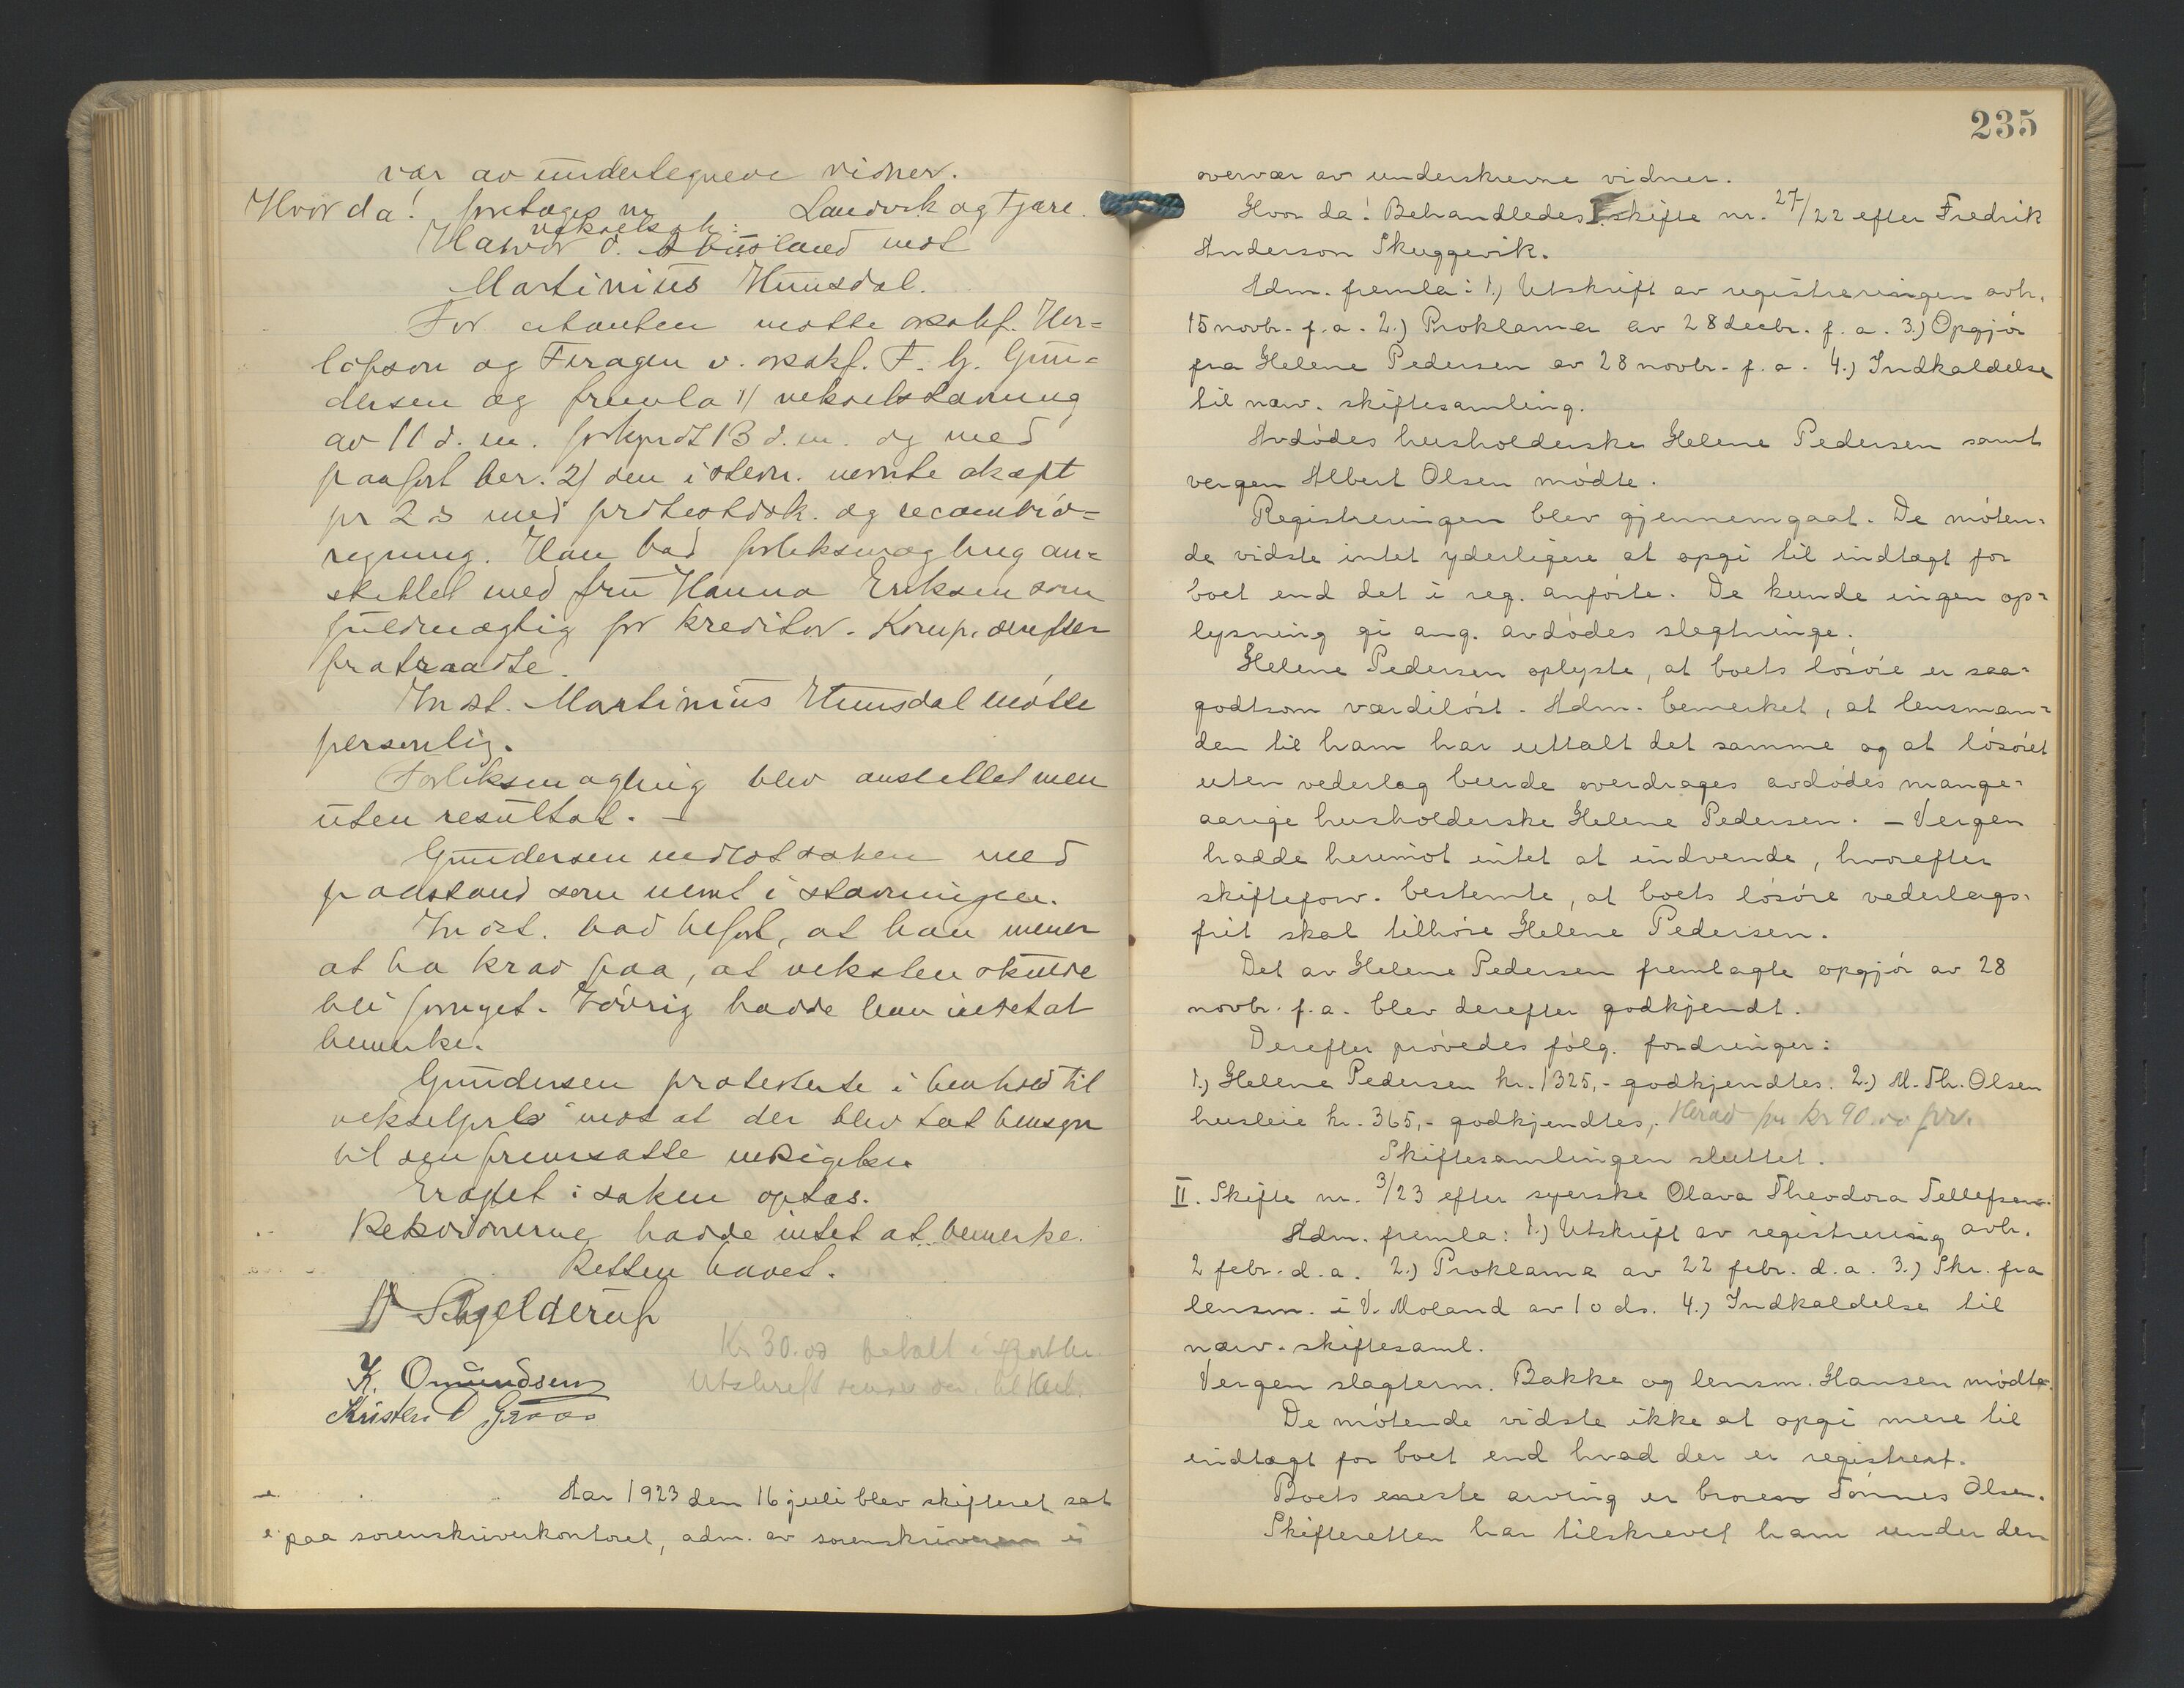 vær av undertegnede vidner.
Hvor da! foretoges Landvik og Fjære.
vekselsak:
O. Abusland mot
Martinius Hunsdal.
For citanten møtte oskf. Her-
lofson og Tragen v. oskf. F. G. Gun-
dersen og fremla 1) vekselstævning
av 11 d. m. forkyndt 13 d. m. og med
paaført ber. 2) den i stevn. nevnte aksept
pr 2 s med protestdok. og recambio-
regning. Han bad forliksmægling an-
stillet med fru Hanna Eriksen som
fuldmægtig for kreditor. Komp. derefter
fratraadte.
Indst. Martinius Hunsdal møtte
personlig.
Forliksmægling blev anstillet men
uten resultat. —
Gundersen indlot saken med
paastand som nevnt i stævningen.
Indst. bad tilført, at han mener
at ha krav paa, at vekslen skulde
bli fornyet. Iøvrig hadde han intet at
bemerke.
Gundersen protesterte i henhold til
vekselprls mot at der blev tat hensyn
til den fremsatte indsigelse.
Eragtet i saken optas.
Rettsvidnerne hadde intet at bemerke.
Retten hævet.
Schjelderup
Kr 30.00 betalt i
K. Omundsen Utskrift
Kristen O Graas
Aar 1923 den 16 juli blev skifteret sat
paa sorenskriverkontoret, adm. av sorenskriveren i
235
overvær av underskrevne vidner.
Hvor da! Behandledes I skifte nr. 27/22 efter Fredrik
Anderson Skuggevik.
Adm. fremla: 1.) Utskrift av registreringen avh.
15 novbr. f.a. 2.) Proklama av 28 decbr. f.a. 3.) Opgjør
fra Helene Pedersen av 28 novbr. f.a. 4.) Indkaldelse
til næv. skiftesamling.
Avdødes husholderske Helene Pedersen samt
vergen Albert Olsen mødte.
Registreringen blev gjennemgaat. De møten-
de vidste intet yderligere at opgi til indtægt for
boet end det i reg. anførte. De kunde ingen op-
lysning gi ang. avdødes slegtninge.
Helene Pedersen oplyste, at boets løsøre er saa-
godtsom værdiløst. Adm. bemerket, at lensman-
den til ham har uttalt det samme og at løsøret
uten vederlag burde overdrages avdødes mange-
aarige husholderske Helene Pedersen. — Vergen
hadde herimot intet at indvende, hvorefter
skifteforv. bestemte, at boets løsøre vederlags-
frit skal tilhøre Helene Pedersen.
Det av Helene Pedersen fremlagte opgjør av 28
novbr. f.a. blev derefter godkjendt.
Derefter prøvedes følg. fordringer:
1.) Helene Pedersen kr. 1325,- godkjendtes. 2.) M. Th. Olsen
husleie kr. 365,- godkjendtes, Herav kr 90.00 prv.
Skiftesamlingen sluttet.
II. Skifte nr. 3/23 efter syerske Olava Theodora Tellefsen.
Adm. fremla: 1.) Utskrift av registrering avh.
2 febr. d.a. 2.) Proklama av 22 febr. d.a. 3.) Skr. fra
lensm. i V. Moland av 10 ds. 4.) Indkaldelse til
næv. skiftesaml.
Vergen slagterm. Bakke og lensm. Hansen mødte.
De møtende vidste ikke at opgi mere til
indtægt for boet end hvad der er registrert.
Boets eneste arving er broren Tønnes Olsen.
Skifteretten har tilskrevet ham under den